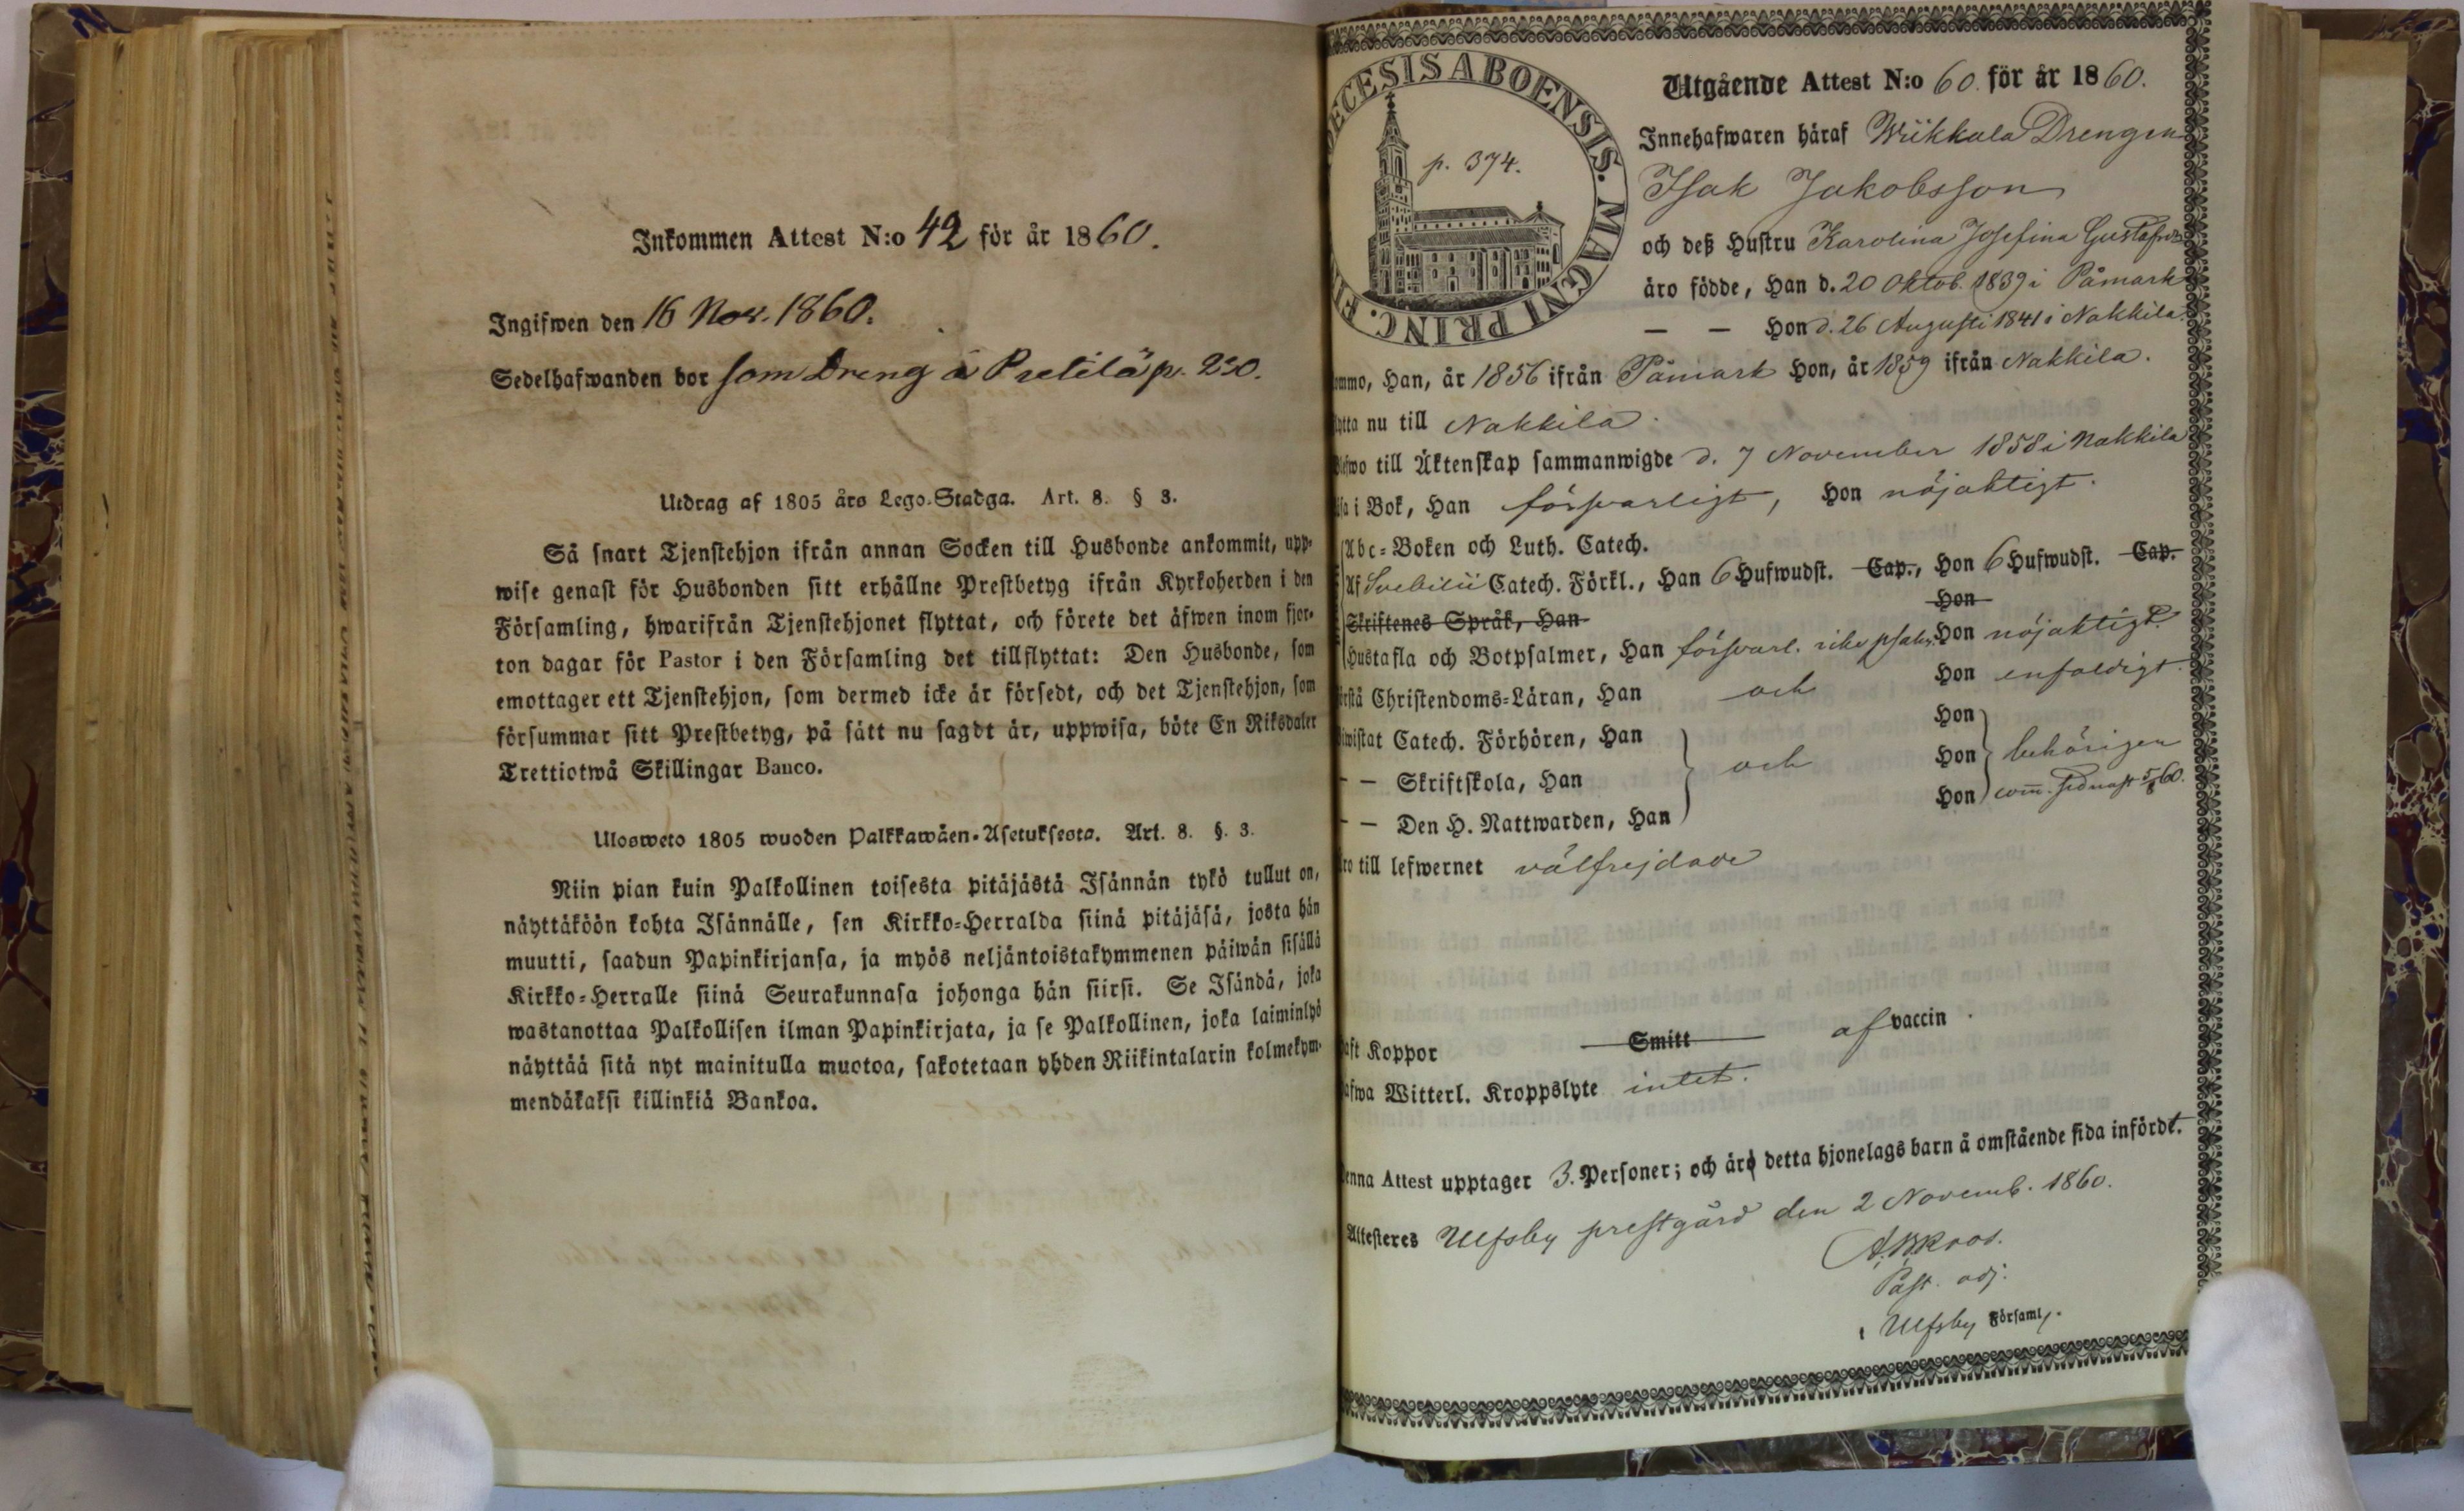 Inkommen Attest N:o 42 för år 1860.
Ingifwen den 16 Nov. 1860.
Sedelhafwanden bor som Dreng å p. 230.
Utdrag af 1805 års Lego-Stadga. Art. 8. § 3.
Så snart Tjenstehjon ifrån annan Socken till Husbonde ankommit, upp-
wise genast för Husbonden sitt erhållne Prestbetyg ifrån Kyrkoherden i den
Församling, hwarifrån Tjenstehjonet flyttat, och förete det äfwen inom fjor-
ton dagar för Pastor i den Församling det tillflyttat: Den Husbonde, som
emottager ett Tjenstehjon, som dermed icke är försedt, och det Tjenstehjon, som
försummar sitt Prestbetyg, på sätt nu sagdt är, uppwisa, böte En Riksdaler
Trettiotwå Skillingar Banco.
Ulosweto 1805 wuoden Palkkawäen-Asetuksesta. Art. 8. §. 3.
Niin pian kuin Palkollinen toisesta pitäjästä Isännän tykö tullut on,
näyttäköön kohta Isännälle, sen Kirkko-Herralda siinä pitäjäsä, josta hän
muutti, saadun Papinkirjansa, ja myös neljäntoistakymmenen päiwän sisällä
Kirkko-Herralle siinä Seurakunnasa johonga hän siirsi. Se Isändä, joka
wastanottaa Palkollisen ilman Papinkirjata, ja se Palkollinen, joka laiminlyö
näyttää sitä nyt mainitulla muotoa, sakotetaan yhden Riikintalarin kolmekym-
mendäkaksi killinkiä Bankoa.
ECESIS ABOENSIS. MAGNI PRINC. FI
p. 374.
Utgående Attest N:o 60. för år 1860.
Innehafwaren häraf Wiikkala Drengen
Isak Jakobsson
och deß Hustru Karolina Josefina Gustafsdr
äro födde, Han d. 20 Oktob. 1839 i Påmark
— — Hon d. 26 Augusti 1841 i Nakkila.
ommo, Han, år 1856 ifrån Påmark Hon, år 1859 ifrån Nakkila.
ytta nu till Nakkila.
lefwo till Äktenskap sammanwigde d. 7 November 1858 i Nakkila
äsa i Bok, Han försvarligt, Hon nöjaktigt.
Abc-Boken och Luth. Catech.
Af Svebilii Catech. Förkl., Han 6 Hufwudst. Cap., Hon 6 Hufwudst. Cap.
Skriftenes Språk, Han Hon
Hustafla och Botpsalmer, Han försvarl. Hon nöjaktigt
örstå Christendoms-Läran, Han och Hon enfaldigt.
iwistat Catech. Förhören, Han Hon
— — Skriftskola, Han och Hon behörigen
— — Den H. Nattwarden, Han Hon com. sednast 5/8 60.
äro till lefwernet välfrejdade
aft Koppor Smitt af vaccin.
afwa Witterl. Kroppslyte intet.
enna Attest upptager 3. Personer; och äro detta hjonelags barn å omstående sida infördt.
Attesteres Ulfsby prestgård den 2 Novemb. 1860.
Past. adj.
i Ulfsby Församl.